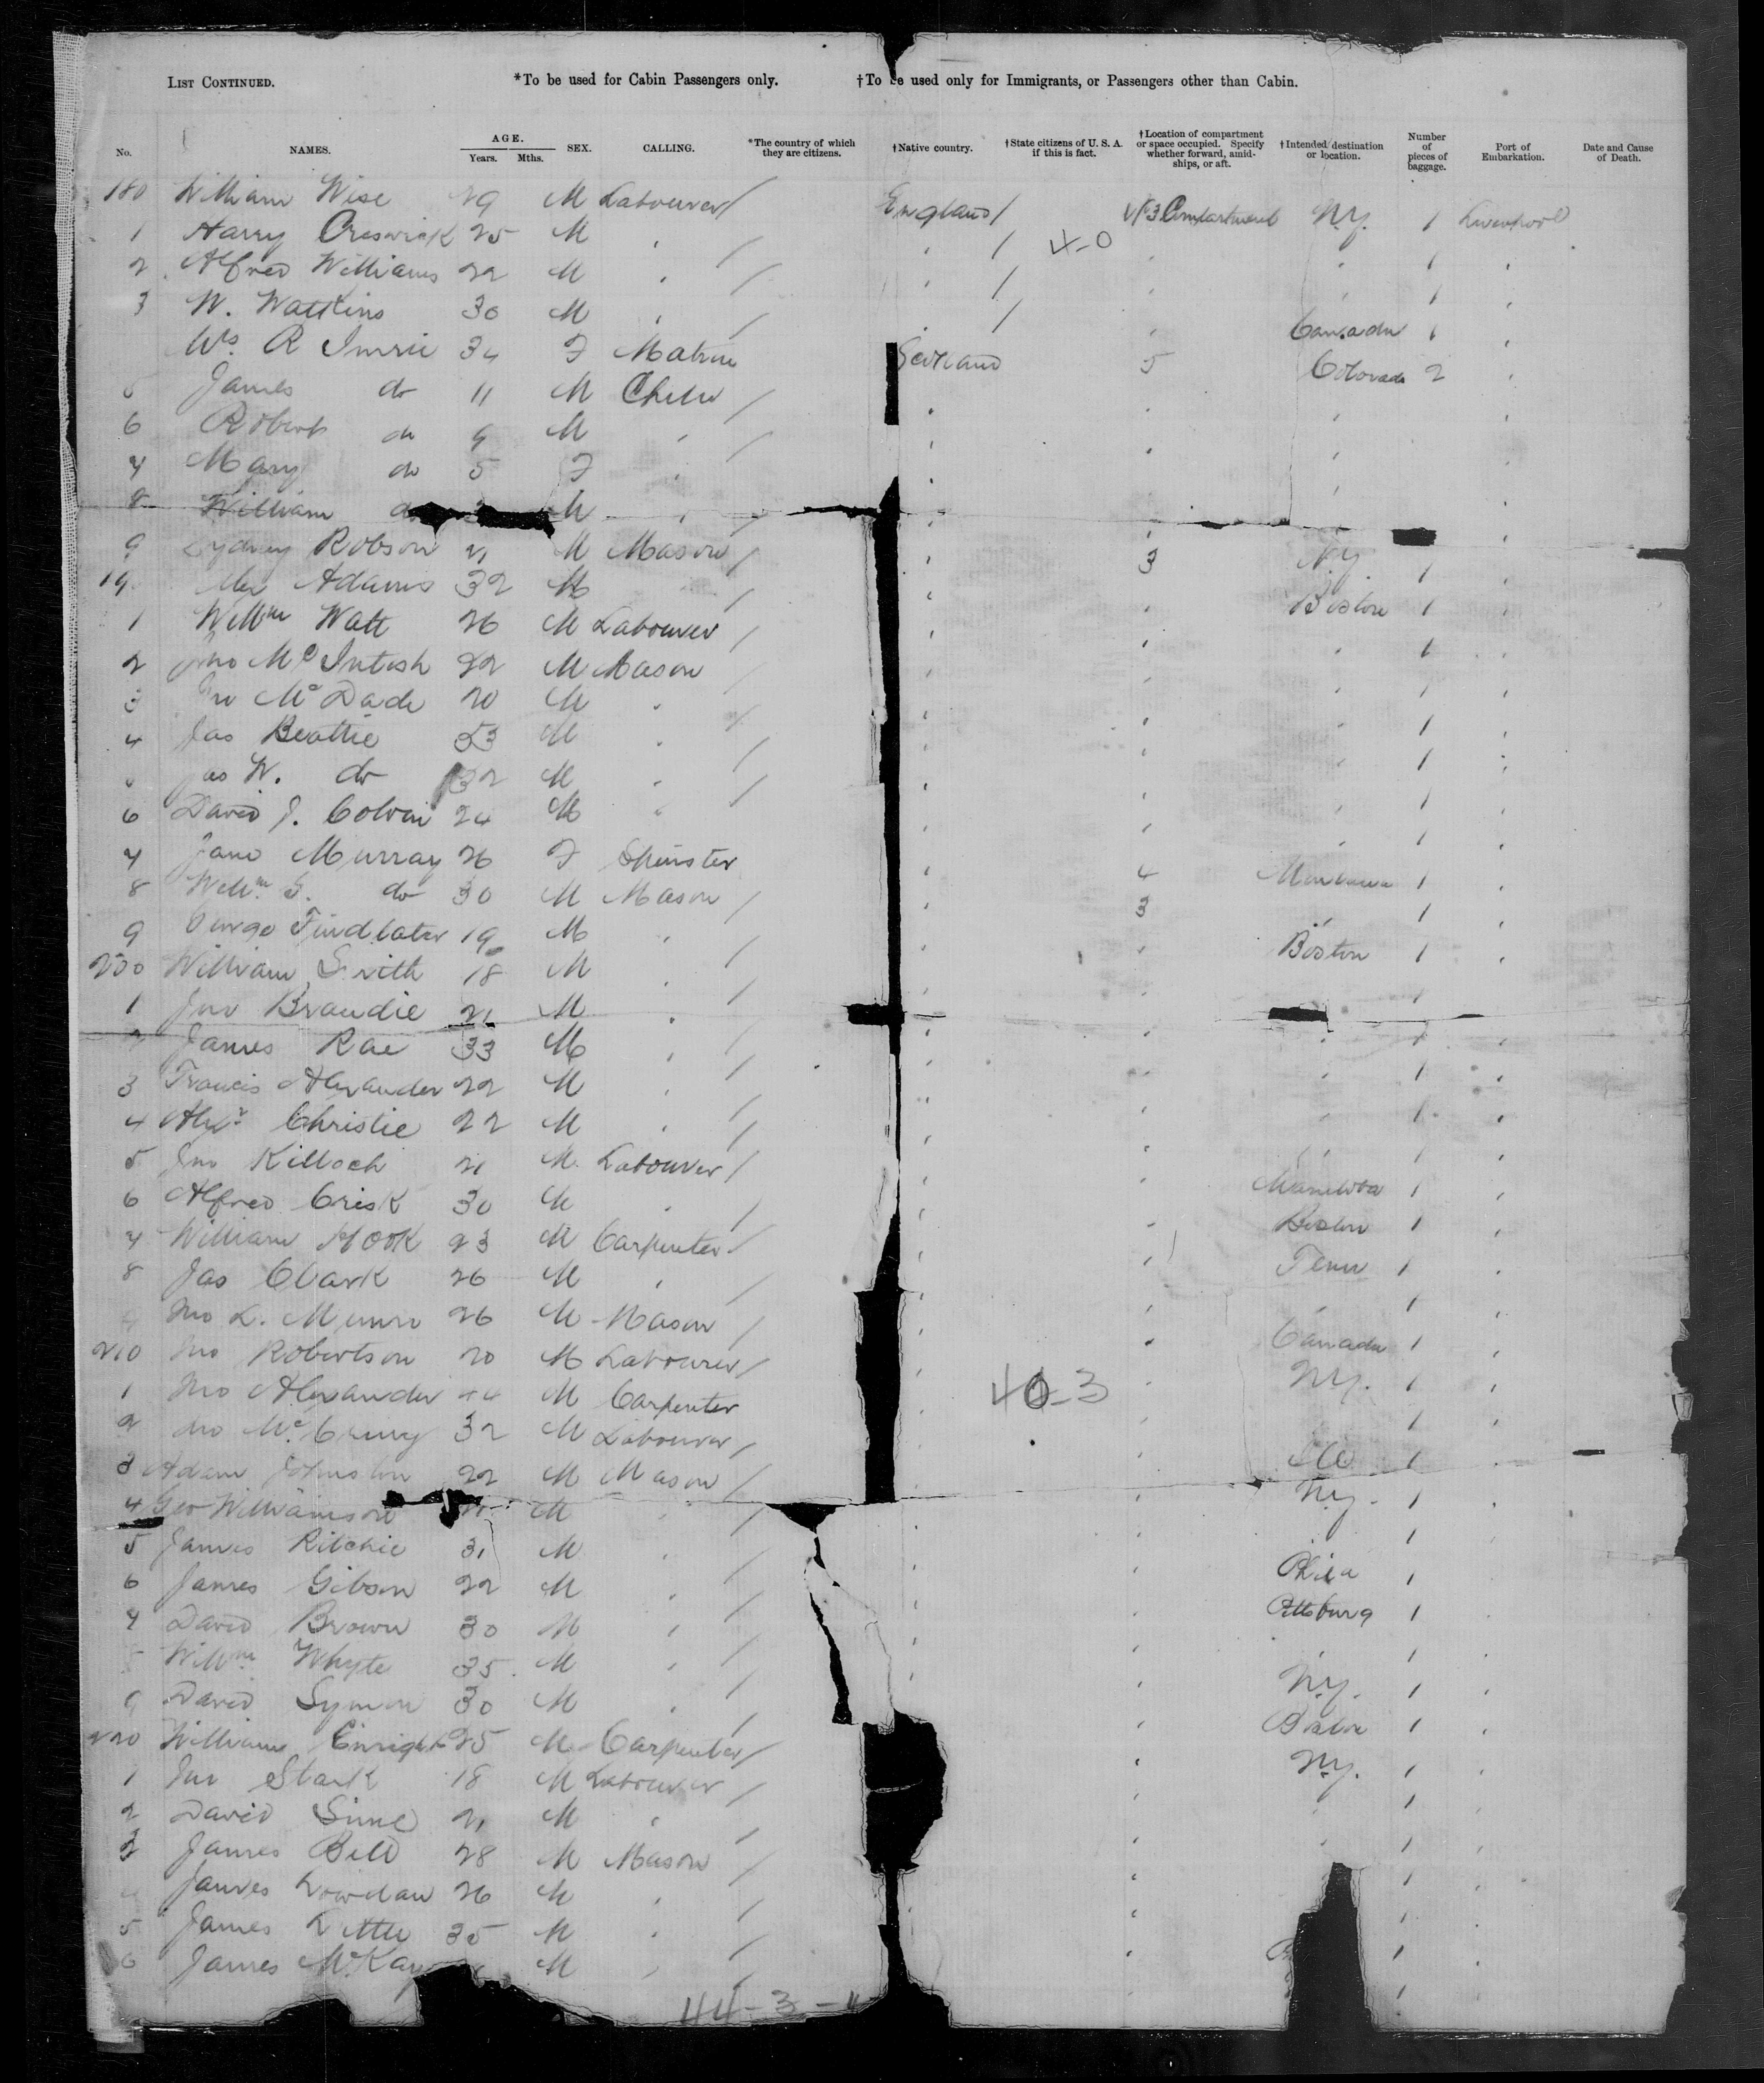 LIST CONTINUED. *To be used for Cabin Passengers only. †To be used only for Immigrants, or Passengers other than Cabin.
No. NAMES. AGE. Years. Mths. SEX. CALLING. *The country of which they are citizens. †Native country. †State citizens of U. S. A. if this is fact. †Location of compartment or space occupied. Specify whether forward, amidships, or aft. †Intended destination or location. Number of pieces of baggage. Port of Embarkation. Date and Cause of Death.
180 William Wise 29 M Labourer / England / No 3 Compartment N.Y. 1 Liverpool
1 Harry Creswick 25 M " / " / 4-0 " " 1 "
2 Alfred Williams 22 M " / " / " " 1 "
3 W. Watkins 30 M " / " / " Canada 1 "
Mrs R Imrie 34 F Matron Scotland 5 Colorado 2 "
5 James do 11 M Child / " " " "
6 Robert do 9 M " / " " " "
7 Mary do 5 F " " " " "
8 William do M " / " " "
9 Sydney Robson 21 M Mason / " 3 N.Y. 1 "
19 Alex Adams 32 M / " " Boston 1 "
1 Willm Watt 26 M Labourer / " " " 1 "
2 Jno McIntosh 22 M Mason / " " " 1 "
3 Jno McDade 20 M " / " " " 1 "
4 Jas Beattie 53 M " / " " " 1 "
Jas W. do 32 M " / " " " 1 "
6 David J. Colvin 24 M " " " " 1 "
7 Jane Murray 26 F Spinster " 4 Montana 1 "
8 Willm S. do 30 M Mason / " 3 " 1 "
9 George Findlater 19 M " / " " Boston 1 "
200 William Smith 18 M " / " " 1
1 Jno Brandie 21 M " / " " " 1 "
2 James Rae 33 M " / " " " 1 "
3 Francis Alexander 22 M " / " " " 1 "
4 Alexr Christie 22 M " / " " " 1 "
5 Jno Killoch 21 M Labourer / " " Manitoba 1 "
6 Alfred Crisk 30 M " / " " Boston 1 "
7 William Hook 23 M Carpenter / " " Tenn 1 "
8 Jas Clark 26 M " / " " " 1
9 Jno L. Munro 26 M Mason / " " Canada 1 "
210 Jno Robertson 20 M Labourer / " " N.Y. 1 "
1 Jno Alexander M Carpenter 40-3 " " " 1 "
2 Jno 32 M Labourer / " " Ill 1 "
3 Adam Johnston 22 M Mason / " " N.Y. 1 "
4 Geo Williamson M " / " " " 1
5 James Ritchie 31 M " / " " Phila 1
6 James Gibson 22 M " / " " Pittsburg 1 "
7 David Brown 30 M " / " " " 1
8 Willm Whyte 35 M " / " " N.Y. 1 "
9 David Symon 30 M " / " " Boston 1 "
220 William Enright 25 M Carpenter / " N.Y. 1 "
1 Jno Stark 18 M Labourer / " " 1 "
2 David Sime 21 M " / " " 1 "
3 James Bell 28 M Mason / " 1 "
James 26 M " / " 1 "
5 James Little 35 M " / " 1 "
6 James McKay M " / 1 "
44-3-